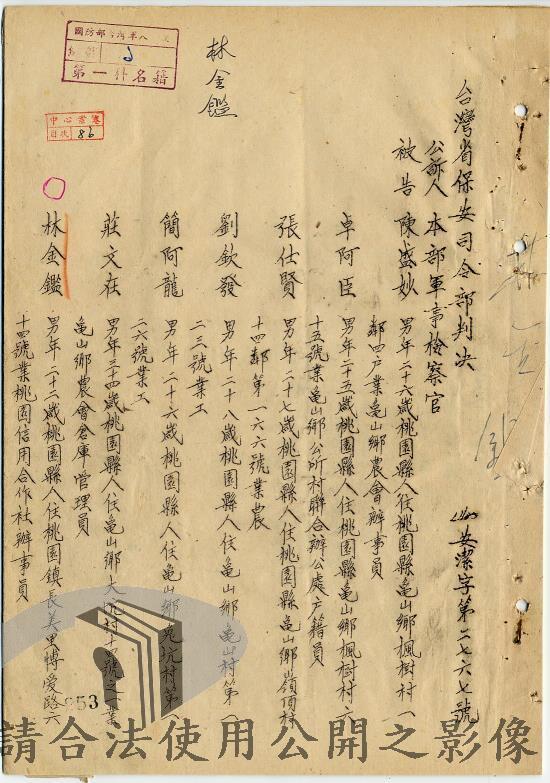 台灣省保安司令部判決
安潔字第二七六七號
公訴人 本部軍事檢察官
被告 陳盛妙 男年二十六歲桃園縣人住桃園縣龜山鄉楓樹村一
鄰四戶業龜山鄉農會辦事員
卓阿臣 男年二十五歲桃園縣人住桃園縣龜山鄉楓樹村六
十五號業龜山鄉公所村聯合辦公處戶籍員
張仕賢 男年二十七歲桃園縣人住桃園縣龜山鄉嶺頂村
十四鄰第一六六號業農
劉欽發 男年二十八歲桃園縣人住龜山鄉龜山村第一
二三號業工
簡阿龍 男年二十六歲桃園縣人住龜山鄉兎坑村第一
二六號業工
莊文在 男年三十四歲桃園縣人住龜山鄉大 村十四號之一業
龜山鄉農會倉庫管理員
林金鑑 男年二十二歲桃園縣人住桃園鎮長美里博愛路六
十四號業桃園信用合作社辦事員
林金鑑
國防部
第一科名籍
目次 86
053
請合法使用公開之影像